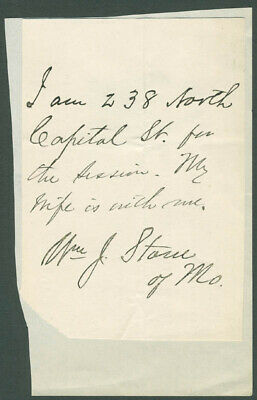 I am 238 North
Capital St. for
the session. My
wife is with me.
Wm J. Stone
of Mo.